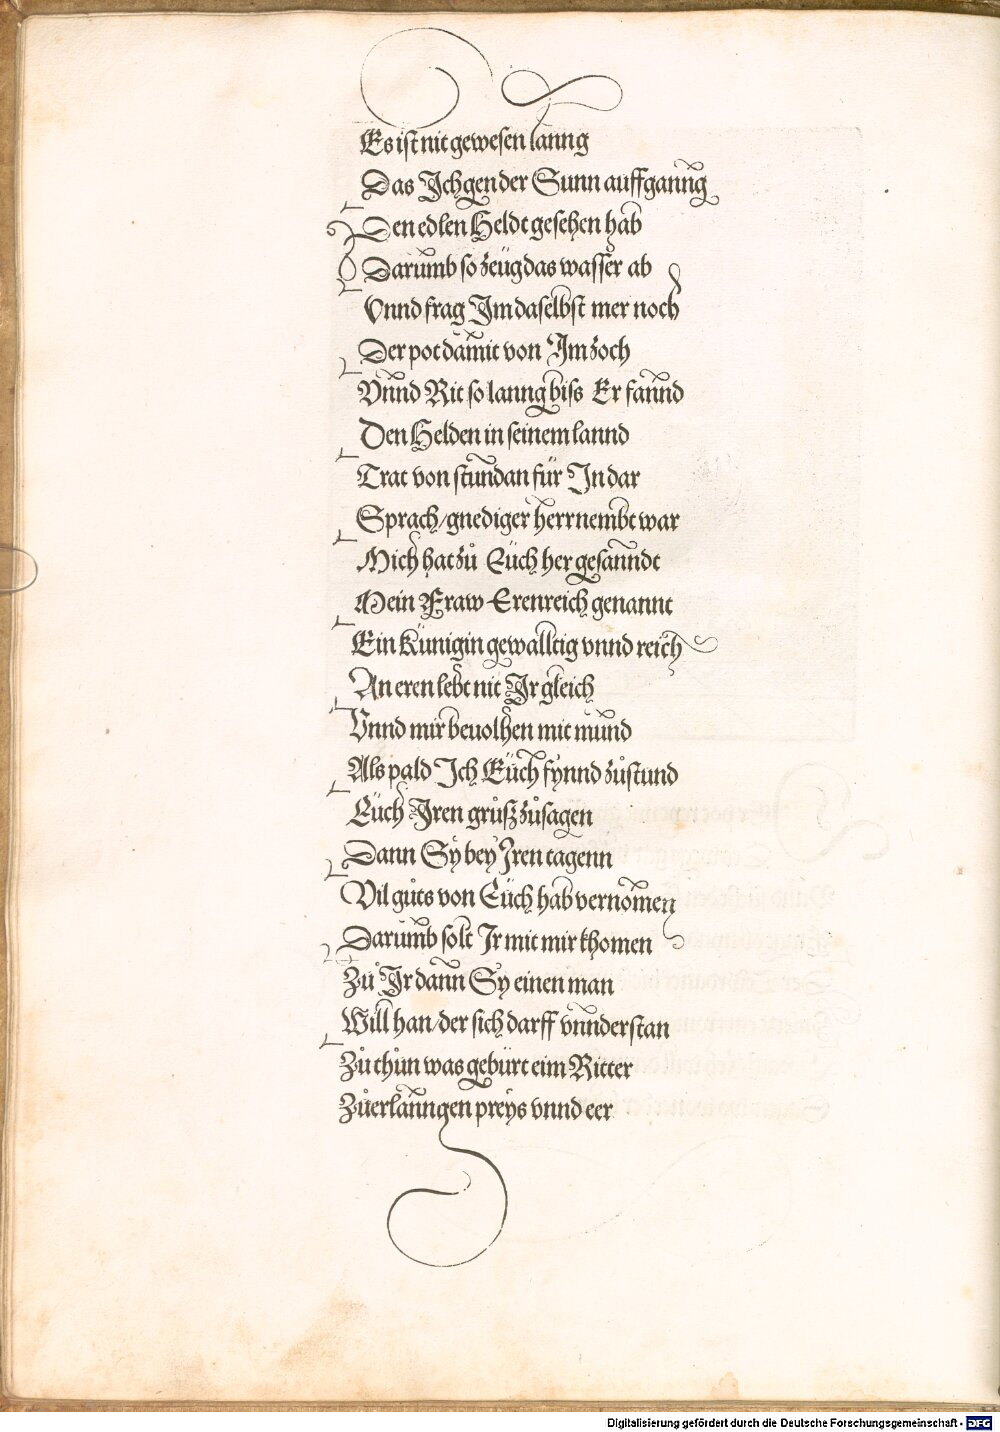 Es ist nit gewesen lanng
Das Ich gen der Sunn auffganng
Den edlen Heldt gesehen hab
Darumb so zeüg das wasser ab
Vnnd frag Im daselbst mer noch
Der pot damit von Im zoch
Vnnd Rit so lanng biss Er fannd
Den Helden in seinem lannd
Trat von stundan für In dar
Sprach/gnediger herr nembt war
Mich hat zů Eüch her gesanndt
Mein Fraw Erenreich genannt
Ein Künigin gewalltig vnnd reich
An eren lebt nit Ir gleich
Vnnd mir beuolhen mit mund
Als pald Ich Eüch fynnd zůstund
Eüch Iren grůsz zůsagen
Dann Sy bey Iren tagenn
Vil gůts von Eüch hab vernomen
Darumb solt Ir mit mir khomen
Zů Ir dann Sy einen man
Will han/der sich darff vnnderstan
Zů thůn was gebürt eim Ritter
Zůerlanngen preys vnnd eer
Digitalisierung gefördert durch die Deutsche Forschungsgemeinschaft - DFG